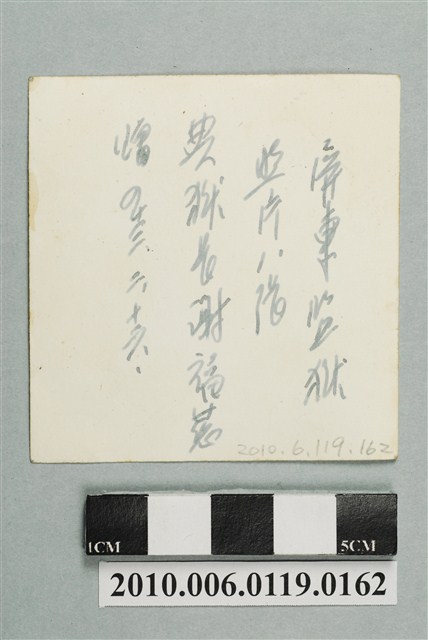 屏東監獄
照片八張
典獄長謝福
贈 二.十六.
2010.6.119.162
1CM 5CM
2010.006.0119.0162